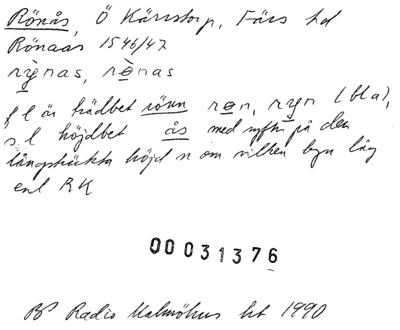 Rönås, Ö Kärrstorp, Färs hd
Rönaas 1546/47
rỳnas, rònas
fl är trädbet rönn røn, ryn (bl a),
sl höjdbet ås med syftn på den
långsträckta höjd n om vilken byn låg
enl RK
00031376
Radio Malmöhus ht 1990